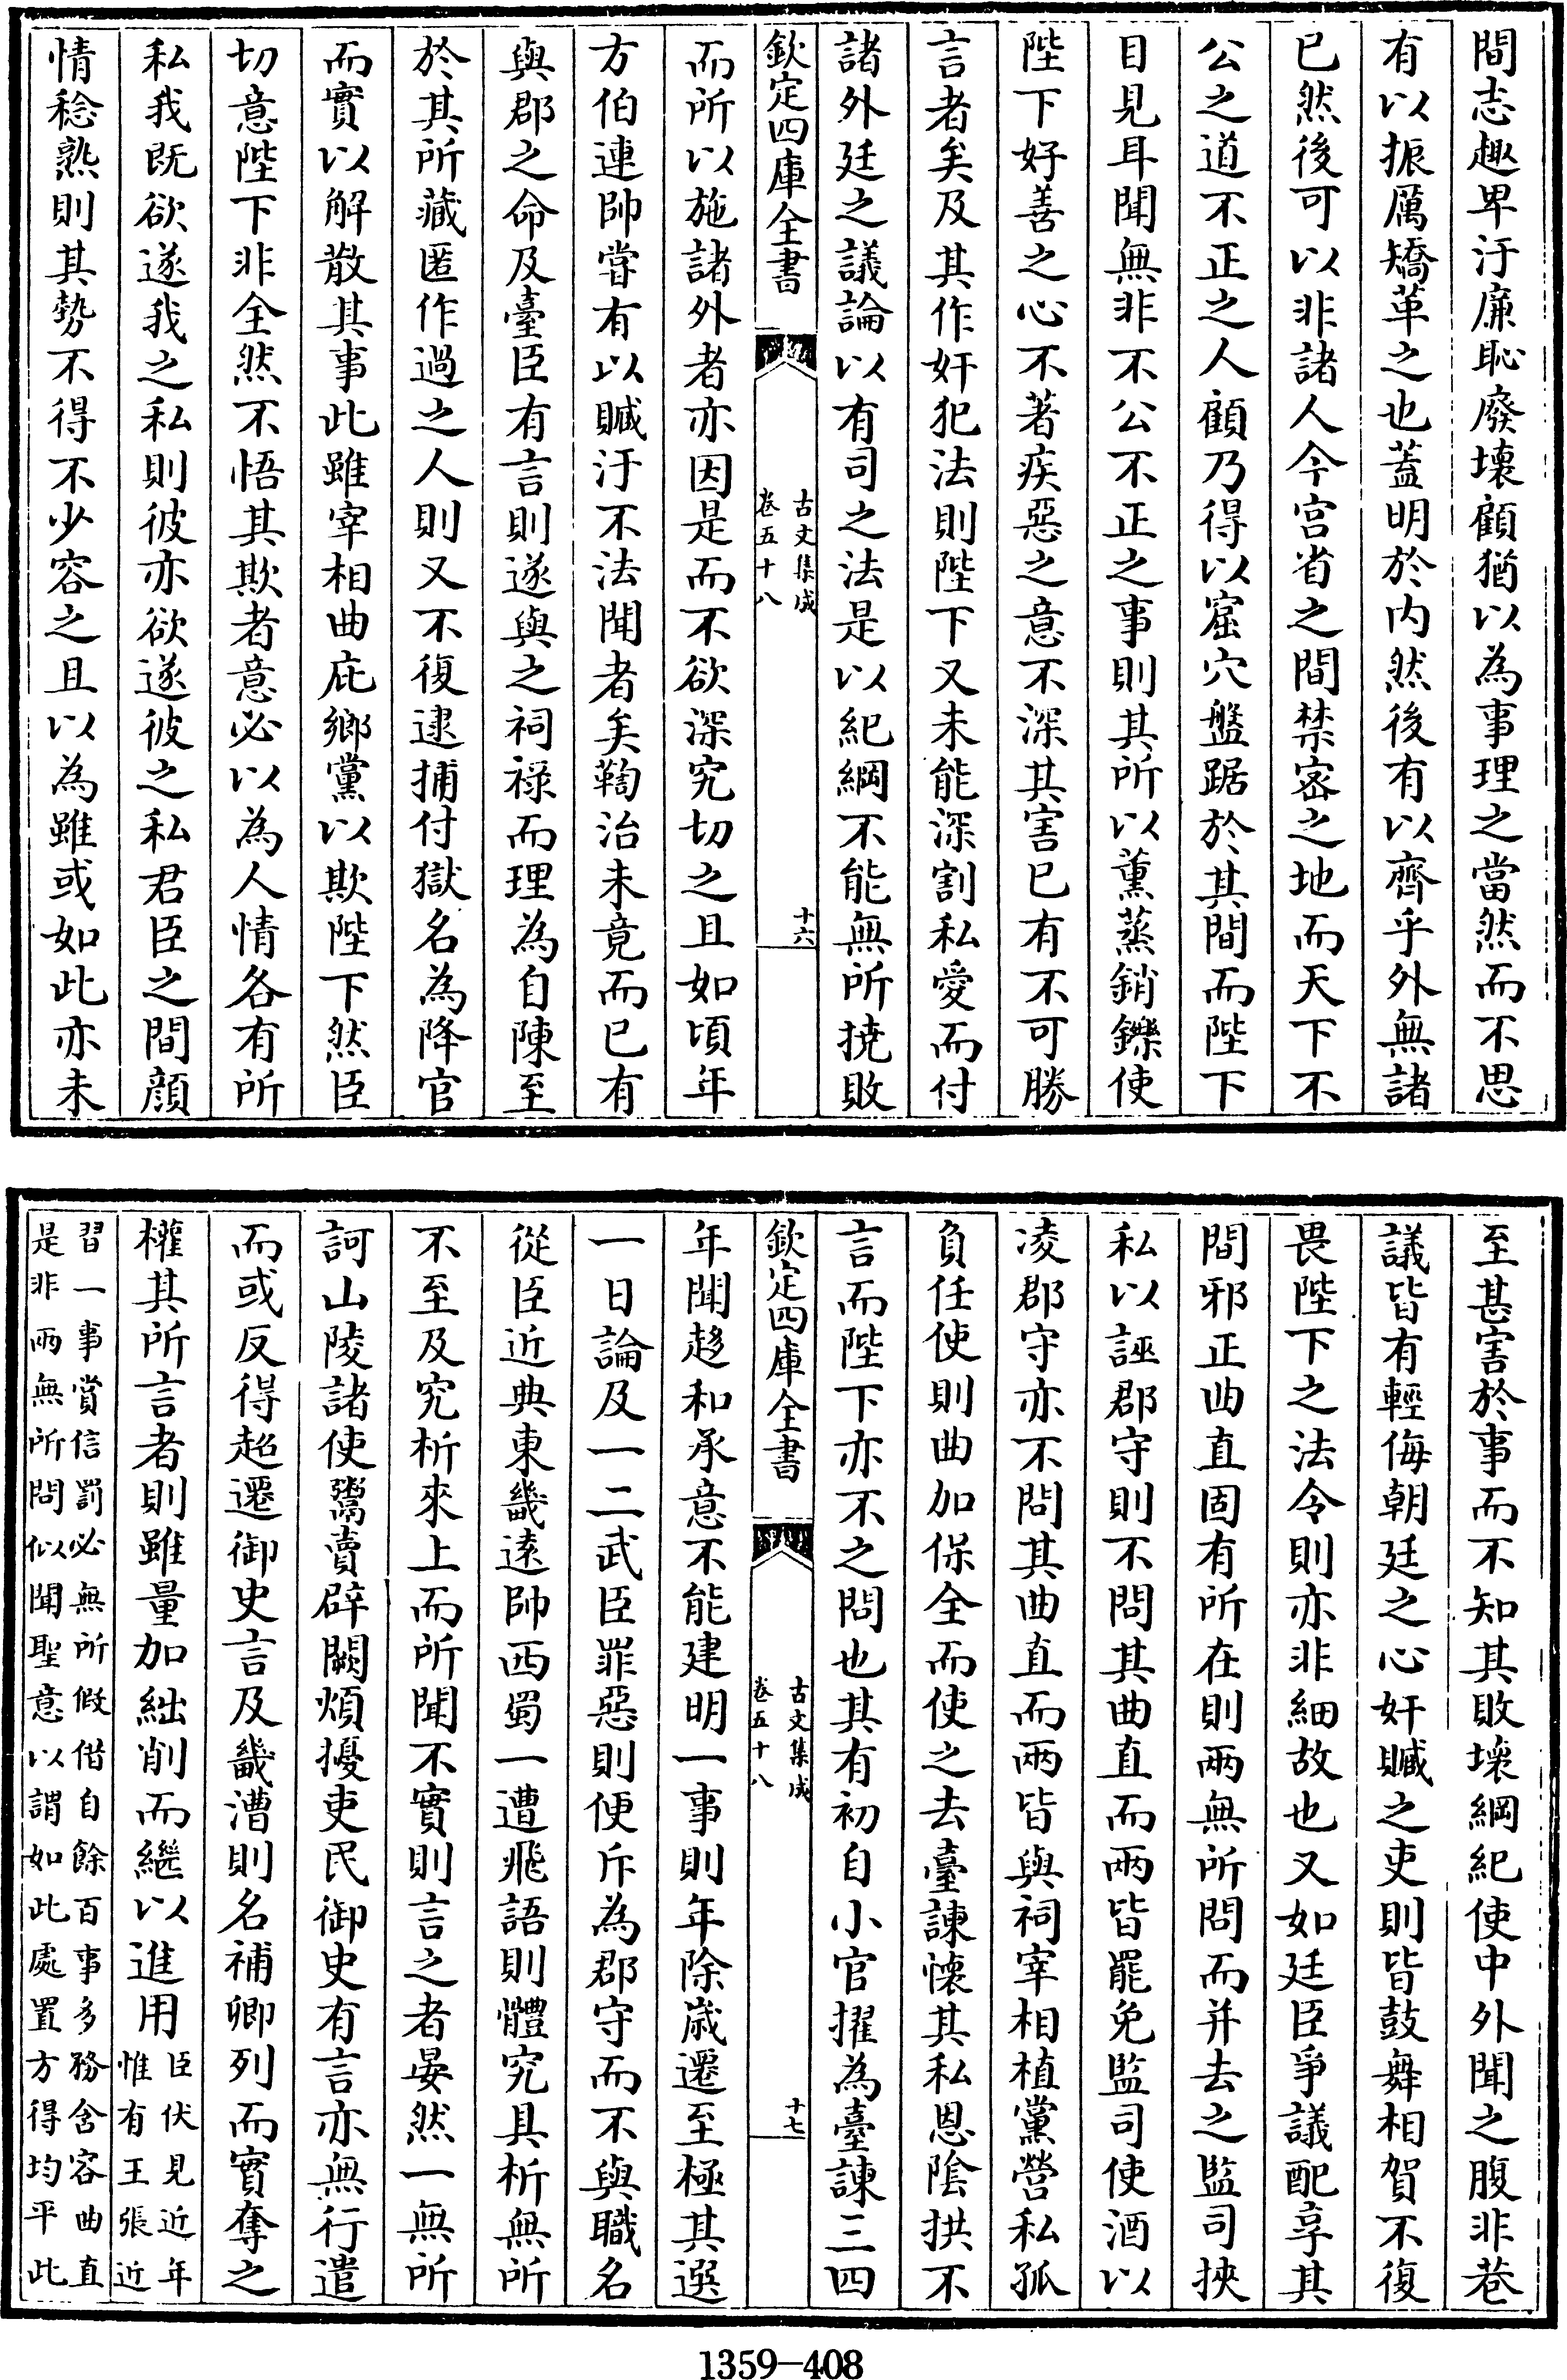 間志趣卑汙廉恥廢壞顧猶以為事理之當然而不思
有以振厲矯革之也蓋明於内然後有以齊乎外無諸
已然後可以非諸人今宫省之間禁宻之地而天下不
公之道不正之人顧乃得以窟穴盤踞於其間而陛下
目見耳聞無非不公不正之事則其所以薫蒸銷鑠使
陛下好善之心不著疾惡之意不深其害已有不可勝
言者矣及其作奸犯法則陛下又未能深割私愛而付
諸外廷之議論以有司之法是以紀綱不能無所撓敗
欽定四庫全書
古文集成
卷五十八
十六
而所以施諸外者亦因是而不欲深究切之且如頃年
方伯連帥嘗有以贓汙不法聞者矣鞫治未竟而已有
與郡之命及臺臣有言則遂與之祠禄而理為自陳至
於其所藏匿作過之人則又不復逮捕付獄名為降官
而實以解散其事此雖宰相曲庇鄉黨以欺陛下然臣
切意陛下非全然不悟其欺者意必以為人情各有所
私我既欲遂我之私則彼亦欲遂彼之私君臣之間顔
情稔熟則其勢不得不少容之且以為雖或如此亦未
至甚害於事而不知其敗壞綱紀使中外聞之腹非巷
議皆有輕侮朝廷之心奸贓之吏則皆鼓舞相賀不復
畏陛下之法令則亦非細故也又如廷臣爭議配享其
間邪正曲直固有所在則兩無所問而并去之監司挾
私以誣郡守則不問其曲直而兩皆罷免監司使酒以
凌郡守亦不問其曲直而兩皆與祠宰相植黨營私孤
負任使則曲加保全而使之去臺諫懷其私恩陰拱不
言而陛下亦不之問也其有初自小官擢為臺諫三四
欽定四庫全書
古文集成
卷五十八
十七
年聞趍和承意不能建明一事則年除歲遷至極其選
一日論及一二武臣罪惡則便斥為郡守而不與職名
從臣近典東畿逺帥西蜀一遭飛語則體究具析無所
不至及究析來上而所聞不實則言之者晏然一無所
訶山陵諸使鬻賣辟闕煩擾吏民御史有言亦無行遣
而或反得超遷御史言及畿漕則名補卿列而實奪之
權其所言者則雖量加絀削而繼以進用臣伏見近年
惟有王張近
習一事賞信罰必無所假借自餘百事多務含容曲直
是非兩無所問似聞聖意以謂如此處置方得均平此
1359—408